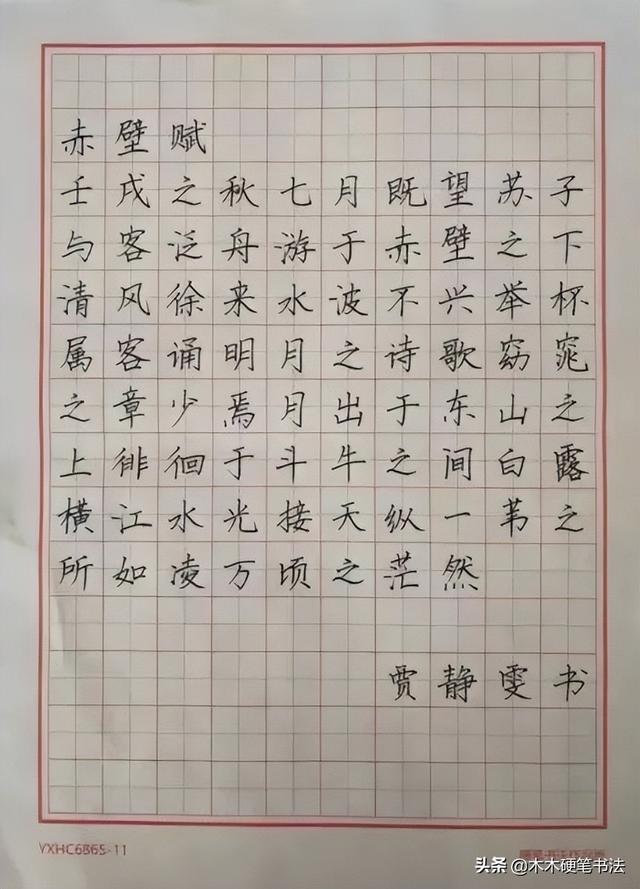 赤壁赋
壬戌之秋七月既望苏子
与客泛舟游于赤壁之下
清风徐来水波不兴举杯
属客诵明月之诗歌窈窕
之章少焉月出于东山之
上徘徊于斗牛之间白露
横江水光接天纵一苇之
所如凌万顷之茫然
贾静雯书
YXHC6865-11
头条@木木硬笔书法